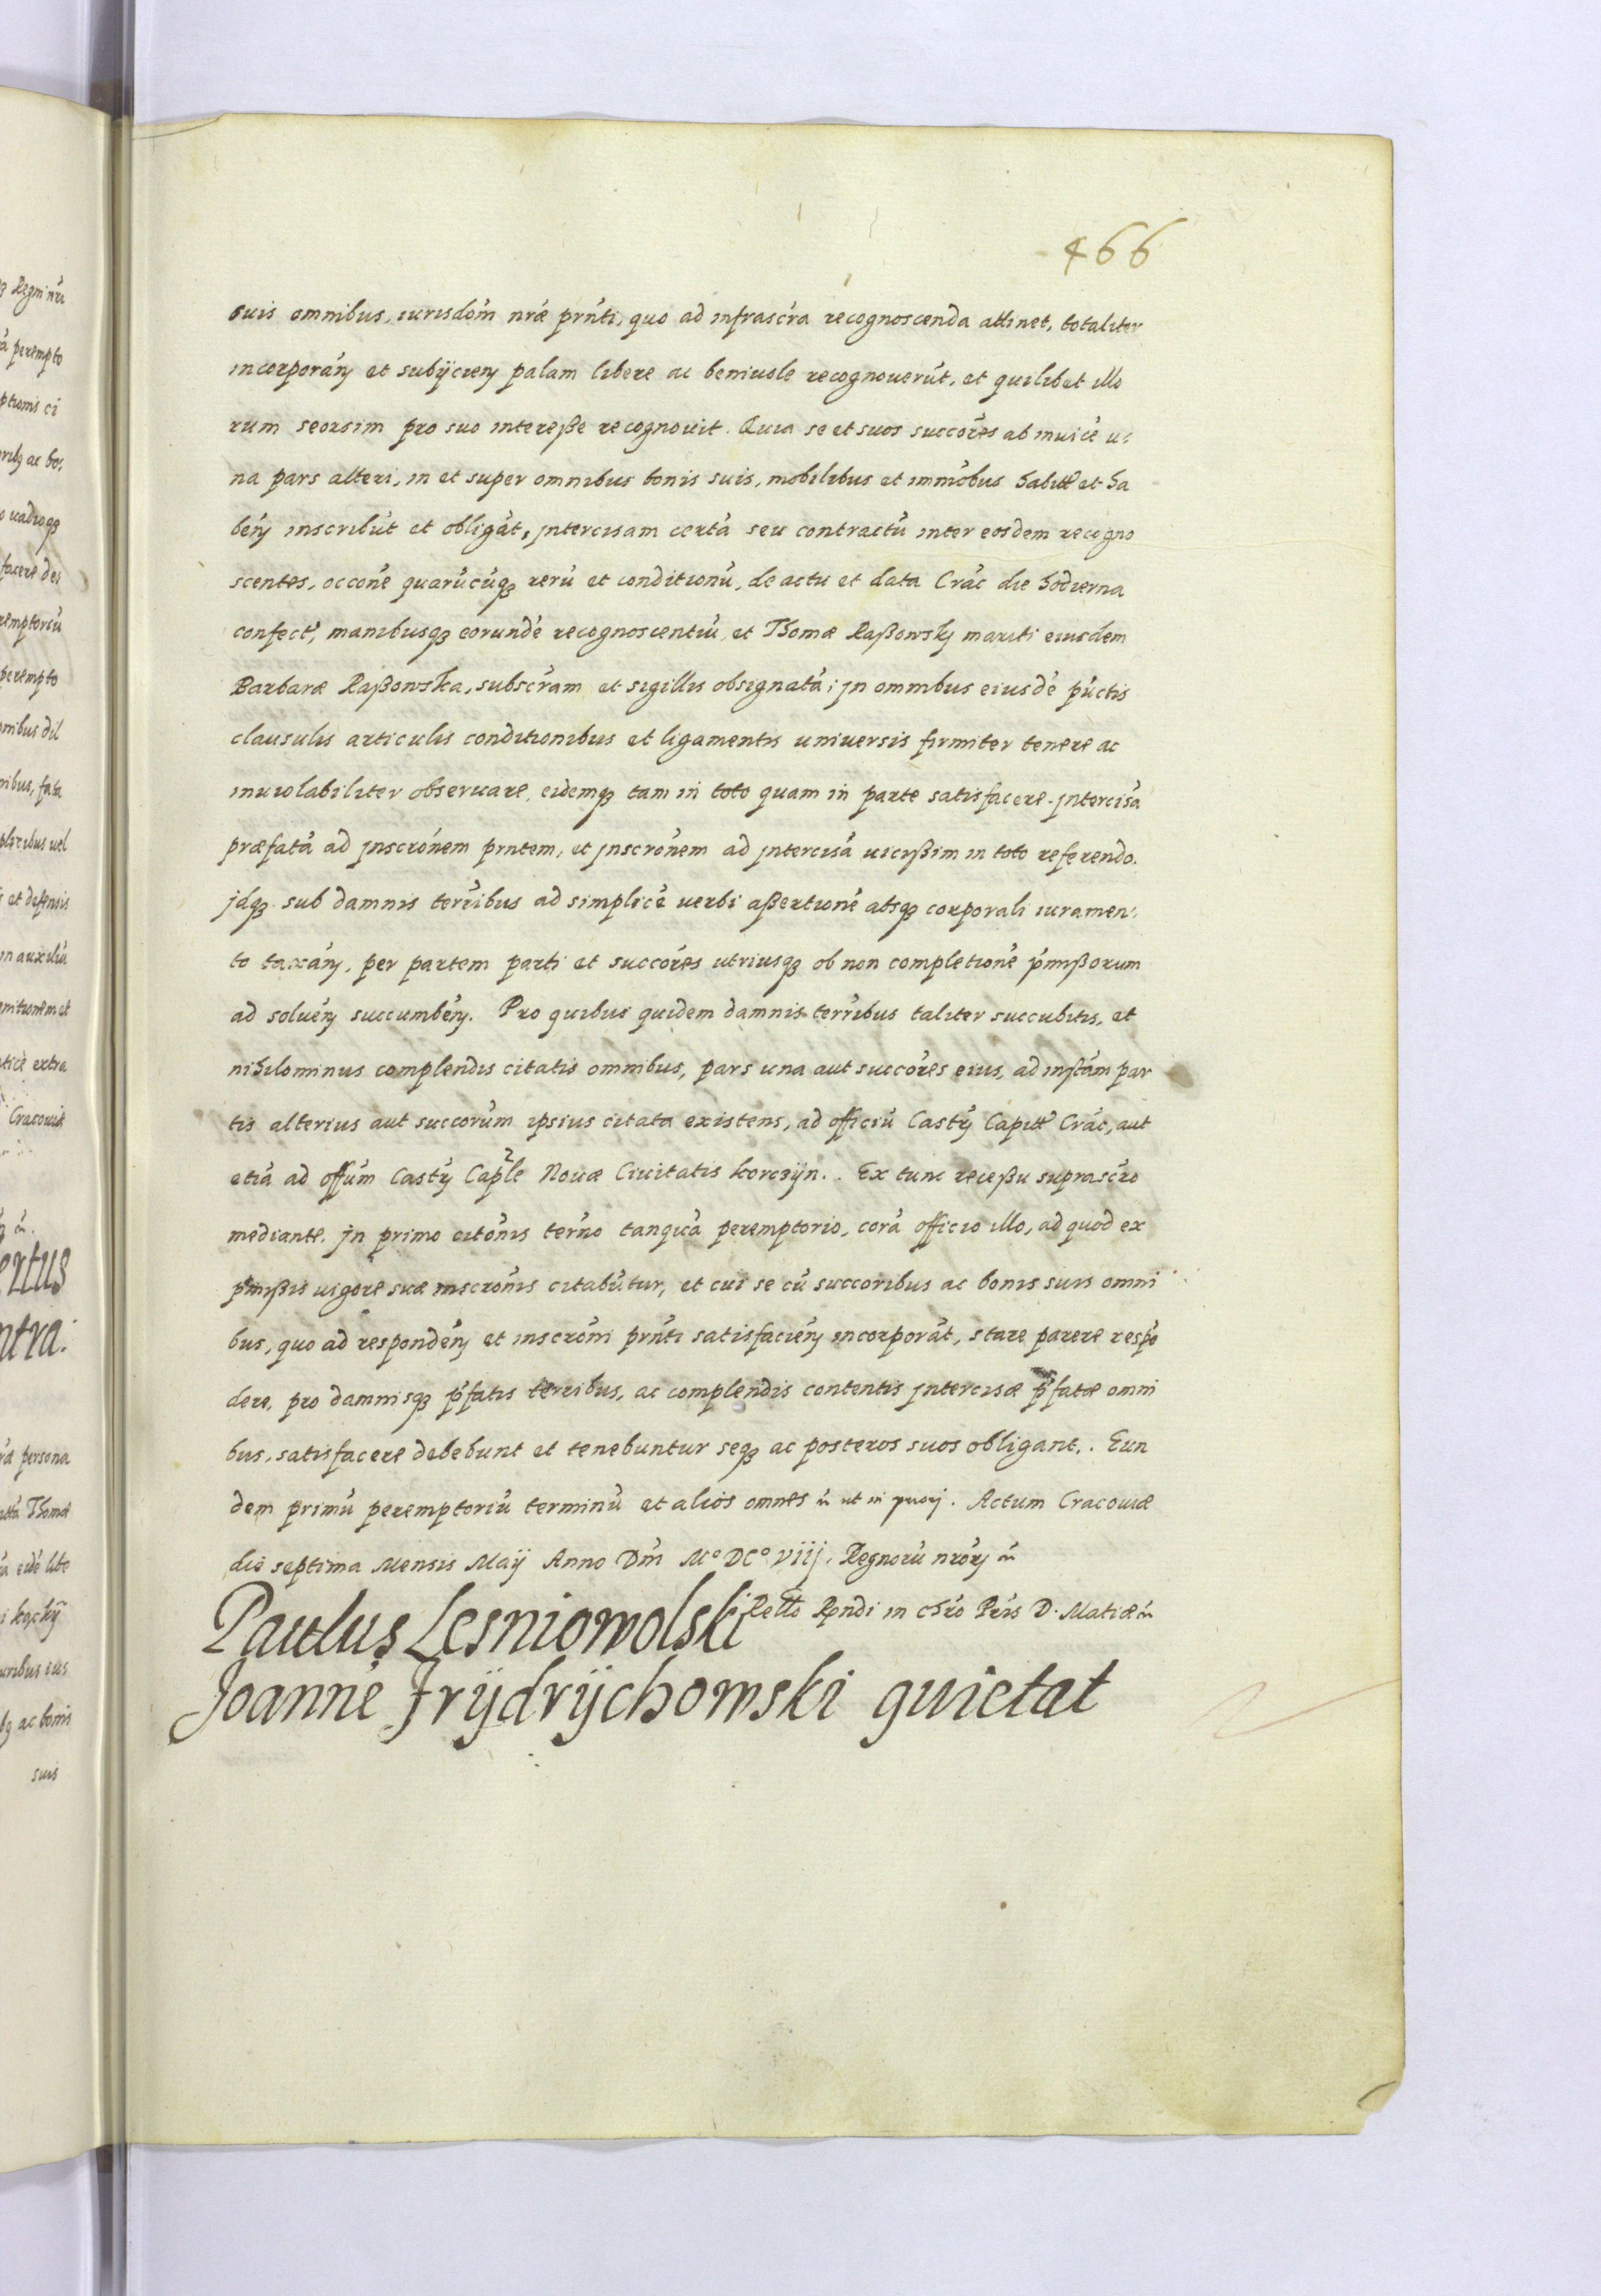 466
suis omnibus, iurisdom̃ nr̃æ prñti, quo ad infrascr̃a recognoscenda attinet, totaliter
incorporañ et subÿcieñ palam libere ac beniuole recognouerũt, et quilibet illo
rum seorsim pro suo interesse recognouit. Quia se et suos succõres ab inuicẽ u:
na pars alteri, in et super omnibus bonis suis, mobilibus et immõbus habitt̃ et ha
beñ inscribũt et obligãt, jntercisam certã seu contractũ inter eosdem recogno
scentes, occõne quarũcũqꝫ rerũ et conditionũ, de actu et data Crãc die hodierna
confect̃, manibusqꝫ eorundẽ recognoscentiũ, et Thomæ Raßowskj mariti eiusdem
Barbaræ Raßowska, subscr̃am et sigillis obsignatã; jn omnibus eiusdẽ pũctis
clausulis articulis conditionibus et ligamentis uniuersis firmiter tenere ac
inuiolabiliter obseruare, eidemqꝫ tam in toto quam in parte satisfacere. jntercisã
præfatã ad jnscrõnem prñtem, et jnscrõnem ad jntercisã uicißim in toto referendo.
jdqꝫ sub damnis terr̃ibus ad simplicẽ uerbi aßertionẽ absqꝫ corporali iuramen:
to taxãñ, per partem parti et succõres utriusqꝫ ob non completionẽ p̃mißorum
ad solueñ succumbeñ. Pro quibus quidem damnis terr̃ibus taliter succubitis, et
nihilominus complendis citatis omnibus, pars una aut succõres eius, ad instãm par
tis alterius aut succorũm ipsius citata existens, ad officiũ Castr̃ Capitt̃ Crãc, aut
etiã ad offũm Castr̃ Cap̃le Nouæ Ciuitatis korczÿn. Ex tunc receßu suprascr̃o
mediante. jn primo citõnis ter̃no tanquã peremptorio, corã officio illo, ad quod ex
p̃mißis uigore suæ inscrõnis citabũtur, et cui se cũ succoribus ac bonis suis omni
bus, quo ad respondeñ et inscrõni prñti satisfacieñ incorporãt, stare parere respõ
dere, pro damnisqꝫ p̃fatis terr̃ibus, ac complendis contentis jntercisæ p̃fatæ omni
bus, satisfacere debebunt et tenebuntur seqꝫ ac posteros suos obligant. Eun
dem primũ peremptoriũ terminũ et alios omnes ut in Actum Cracouiæ
die septima Mensis Maÿ Anno Dñi M° DC° VIIJ. Regnorũ nrõrũ
Paulus Lesniowolski Rell̃o Rendi in chr̃o Pr̃is D. Matiæ
Joannẽ Frÿdrÿchowski quietat